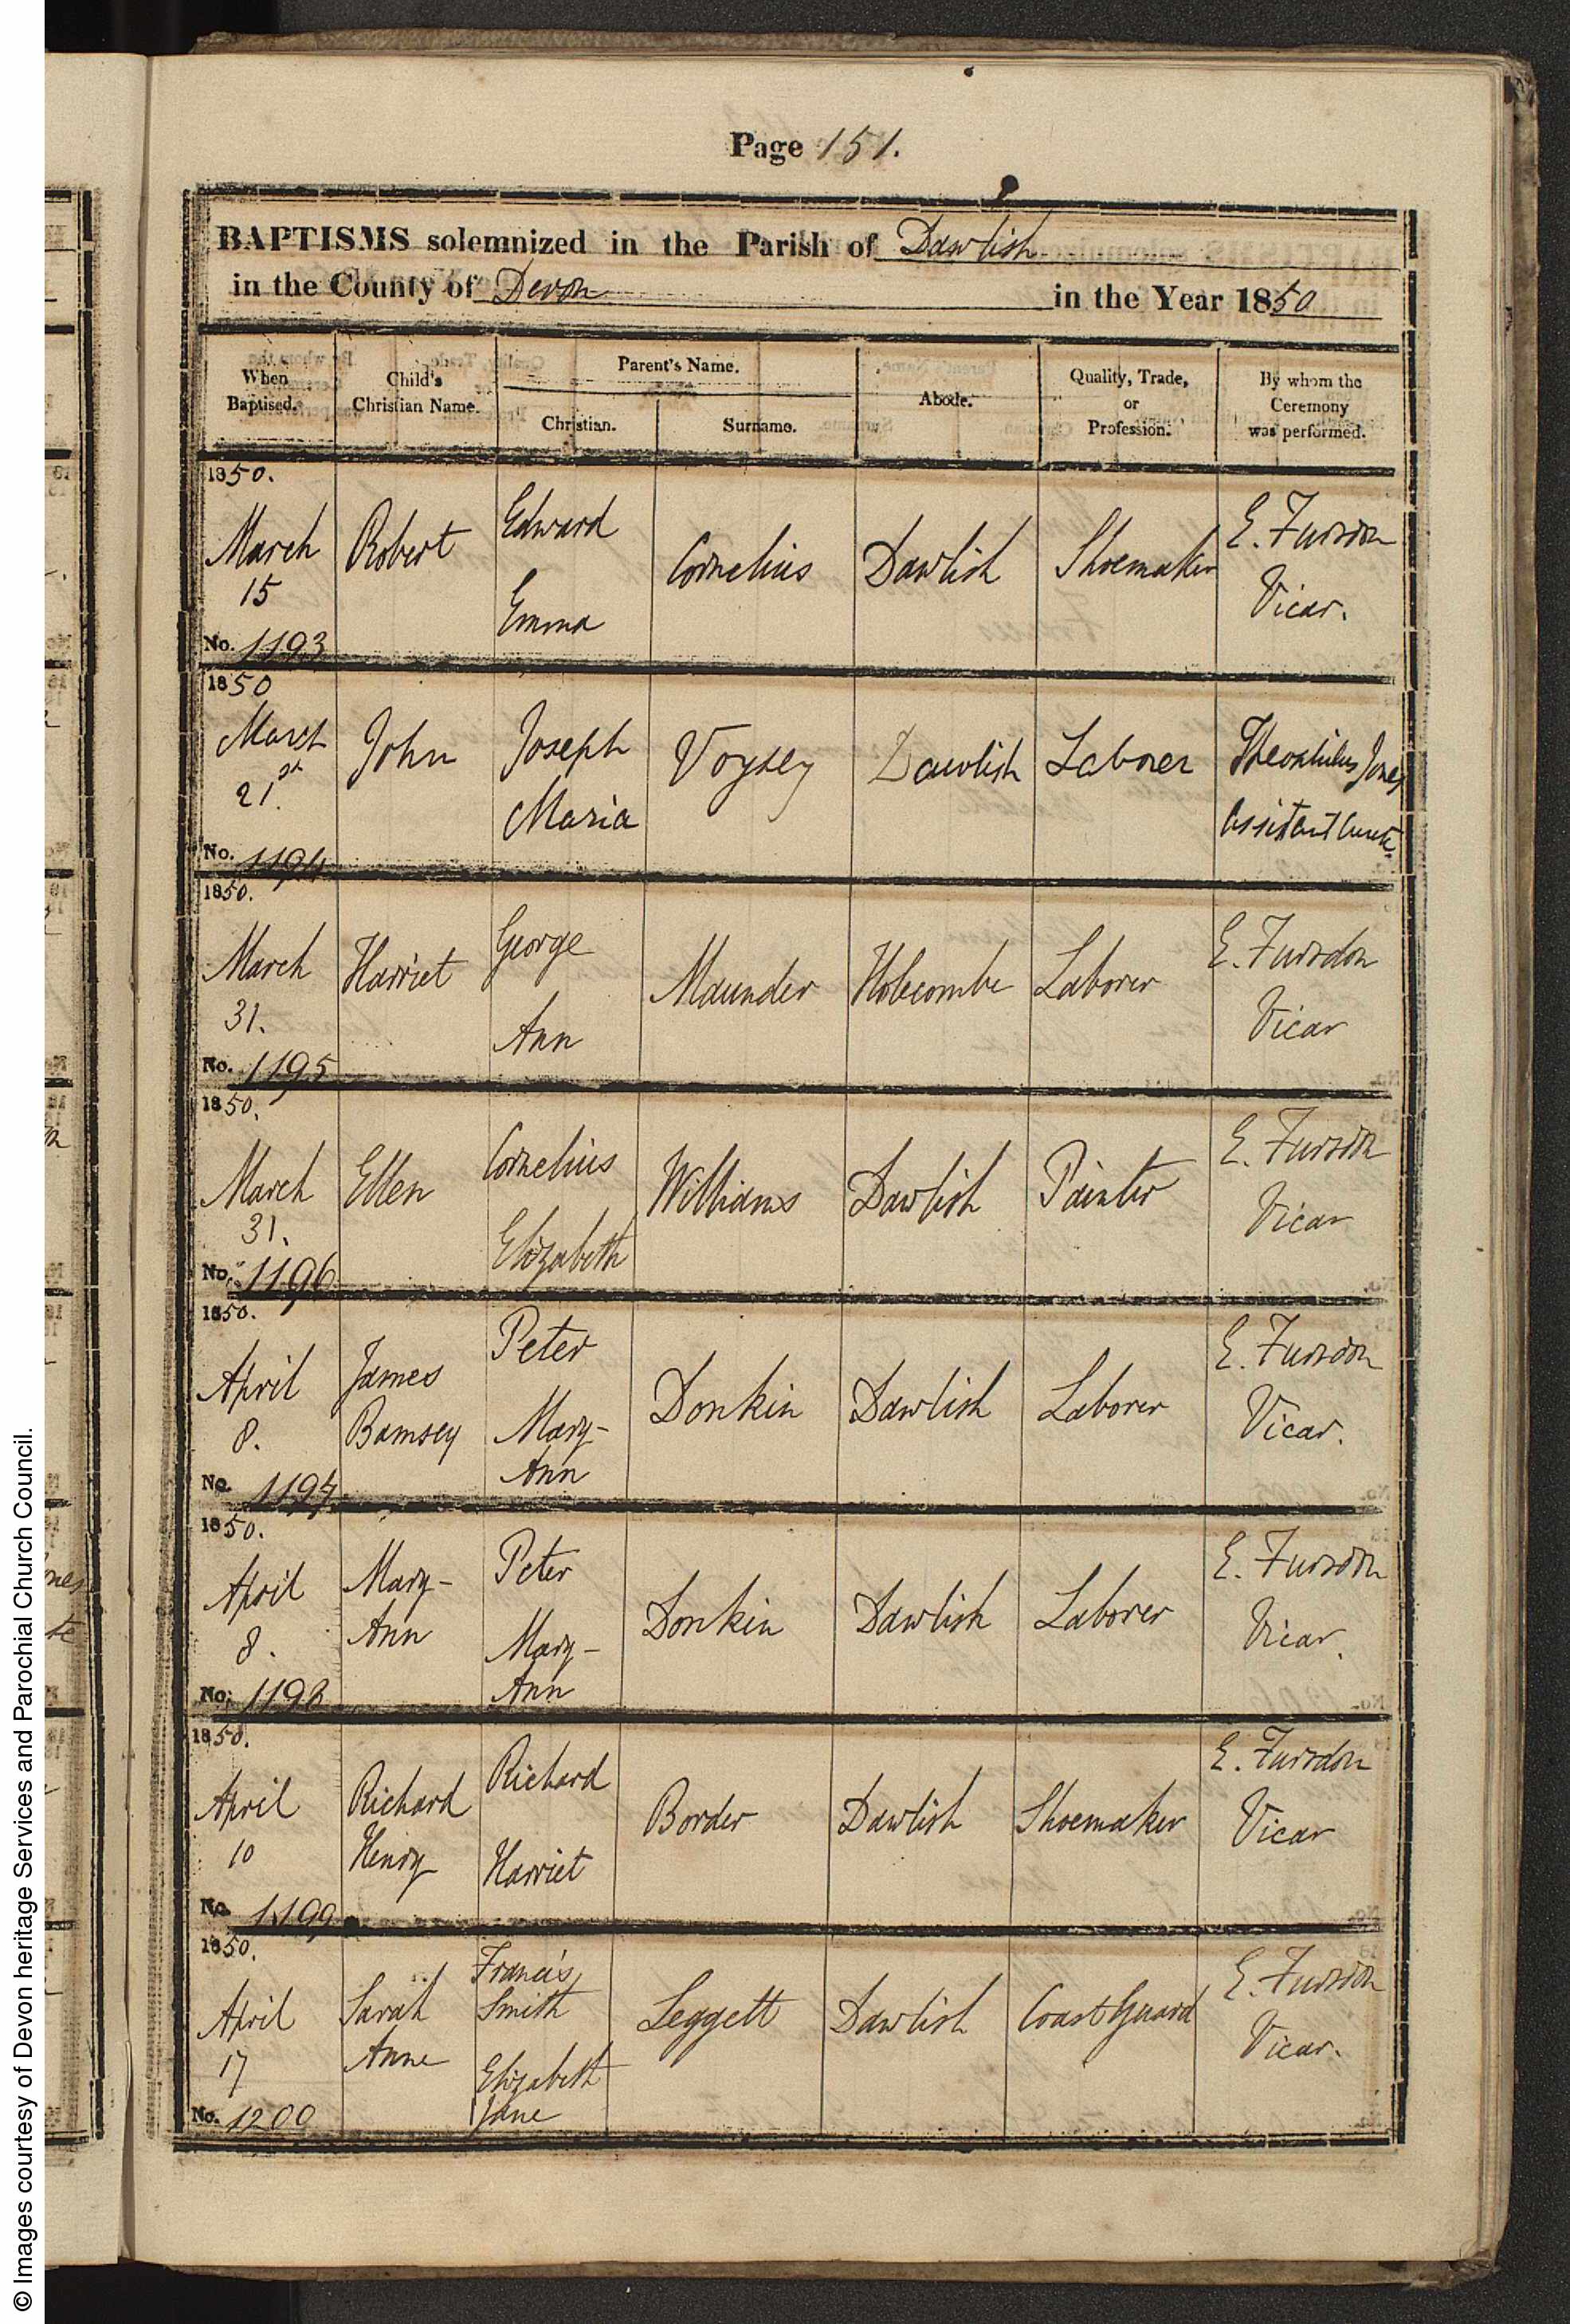 Page 151.
BAPTISMS solemnized in the Parish of Dawlish
in the County of Devon in the Year 1850
When Baptised. Child's Christian Name. Parent's Name. Christian. Surname. Abode. Quality, Trade, or Profession. By whom the Ceremony was performed.
1850.
March 15 Robert Edward Emma Cornelius Dawlish Shoemaker E. Fursdon Vicar.
No. 1193
1850
March 21st John Joseph Maria Voysey Dawlish Laborer Theophilus Jones Assistant Curate
No. 1194
1850.
March 31. Harriet George Ann Maunder Holcombe Laborer E. Fursdon Vicar
No. 1195
1850.
March 31. Ellen Cornelius Elizabeth Williams Dawlish Painter E. Fursdon Vicar
No. 1196
1850.
April 8. James Bamsey Peter Mary-Ann Donkin Dawlish Laborer E. Fursdon Vicar.
No. 1197
1850.
April 8. Mary-Ann Peter Mary-Ann Donkin Dawlish Laborer E. Fursdon Vicar.
No. 1198
1850.
April 10 Richard Henry Richard Harriet Border Dawlish Shoemaker E. Fursdon Vicar
No. 1199
1850.
April 17 Sarah Anne Francis Smith Elizabeth Jane Leggett Dawlish Coast Guard E. Fursdon Vicar.
No. 1200
© Images courtesy of Devon heritage Services and Parochial Church Council.